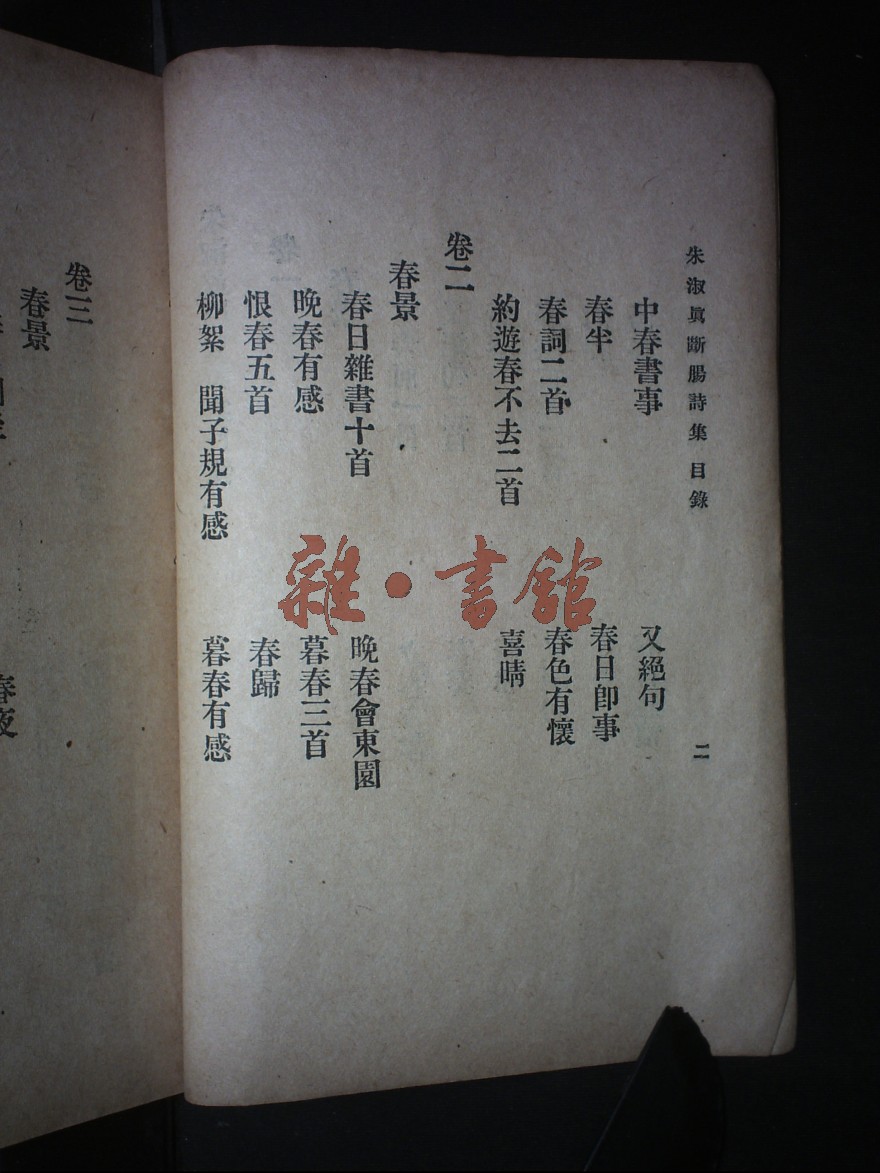 朱淑眞斷腸詩集 目錄 二
中春書事 又絕句
春半 春日卽事
春詞二首 春色有懷
約遊春不去二首 喜晴
卷二
春景
春日雜書十首 晚春會東園
晚春有感 暮春三首
恨春五首 春歸
柳絮 聞子規有感 暮春有感
雜·書館
卷三
春景
春夜